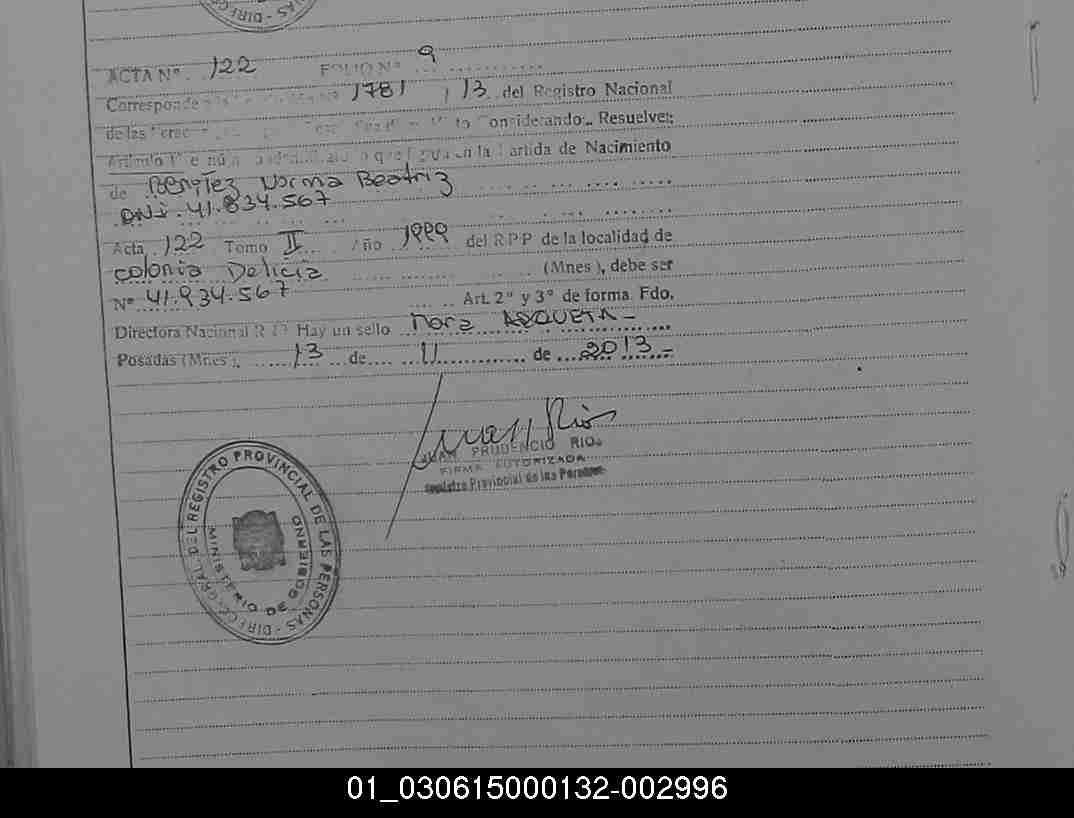 ACTA Nº. 122 FOLIO Nº 9
Corresponde 1781 / 13 del Registro Nacional
de las Considerando:. Resuelve:
que figura en la Partida de Nacimiento
de Benitez Norma Beatriz
DNI. 41.834.567
Acta 122 Tomo II Año 1999 del R.P.P de la localidad de
Colonia Delicia (Mnes), debe ser
Nº 41.934.567 Art. 2º y 3º de forma. Fdo.
Directora Nacional Hay un sello Mora
Posadas (Mnes), 13 de 11 de 2013-
Juan Rios
JUAN PRUDENCIO RIOS
FIRMA AUTORIZADA
Registro Provincial de las Personas
DIRECC. GRAL. DEL REGISTRO PROVINCIAL DE LAS PERSONAS
MINISTERIO DE GOBIERNO
01_030615000132-002996